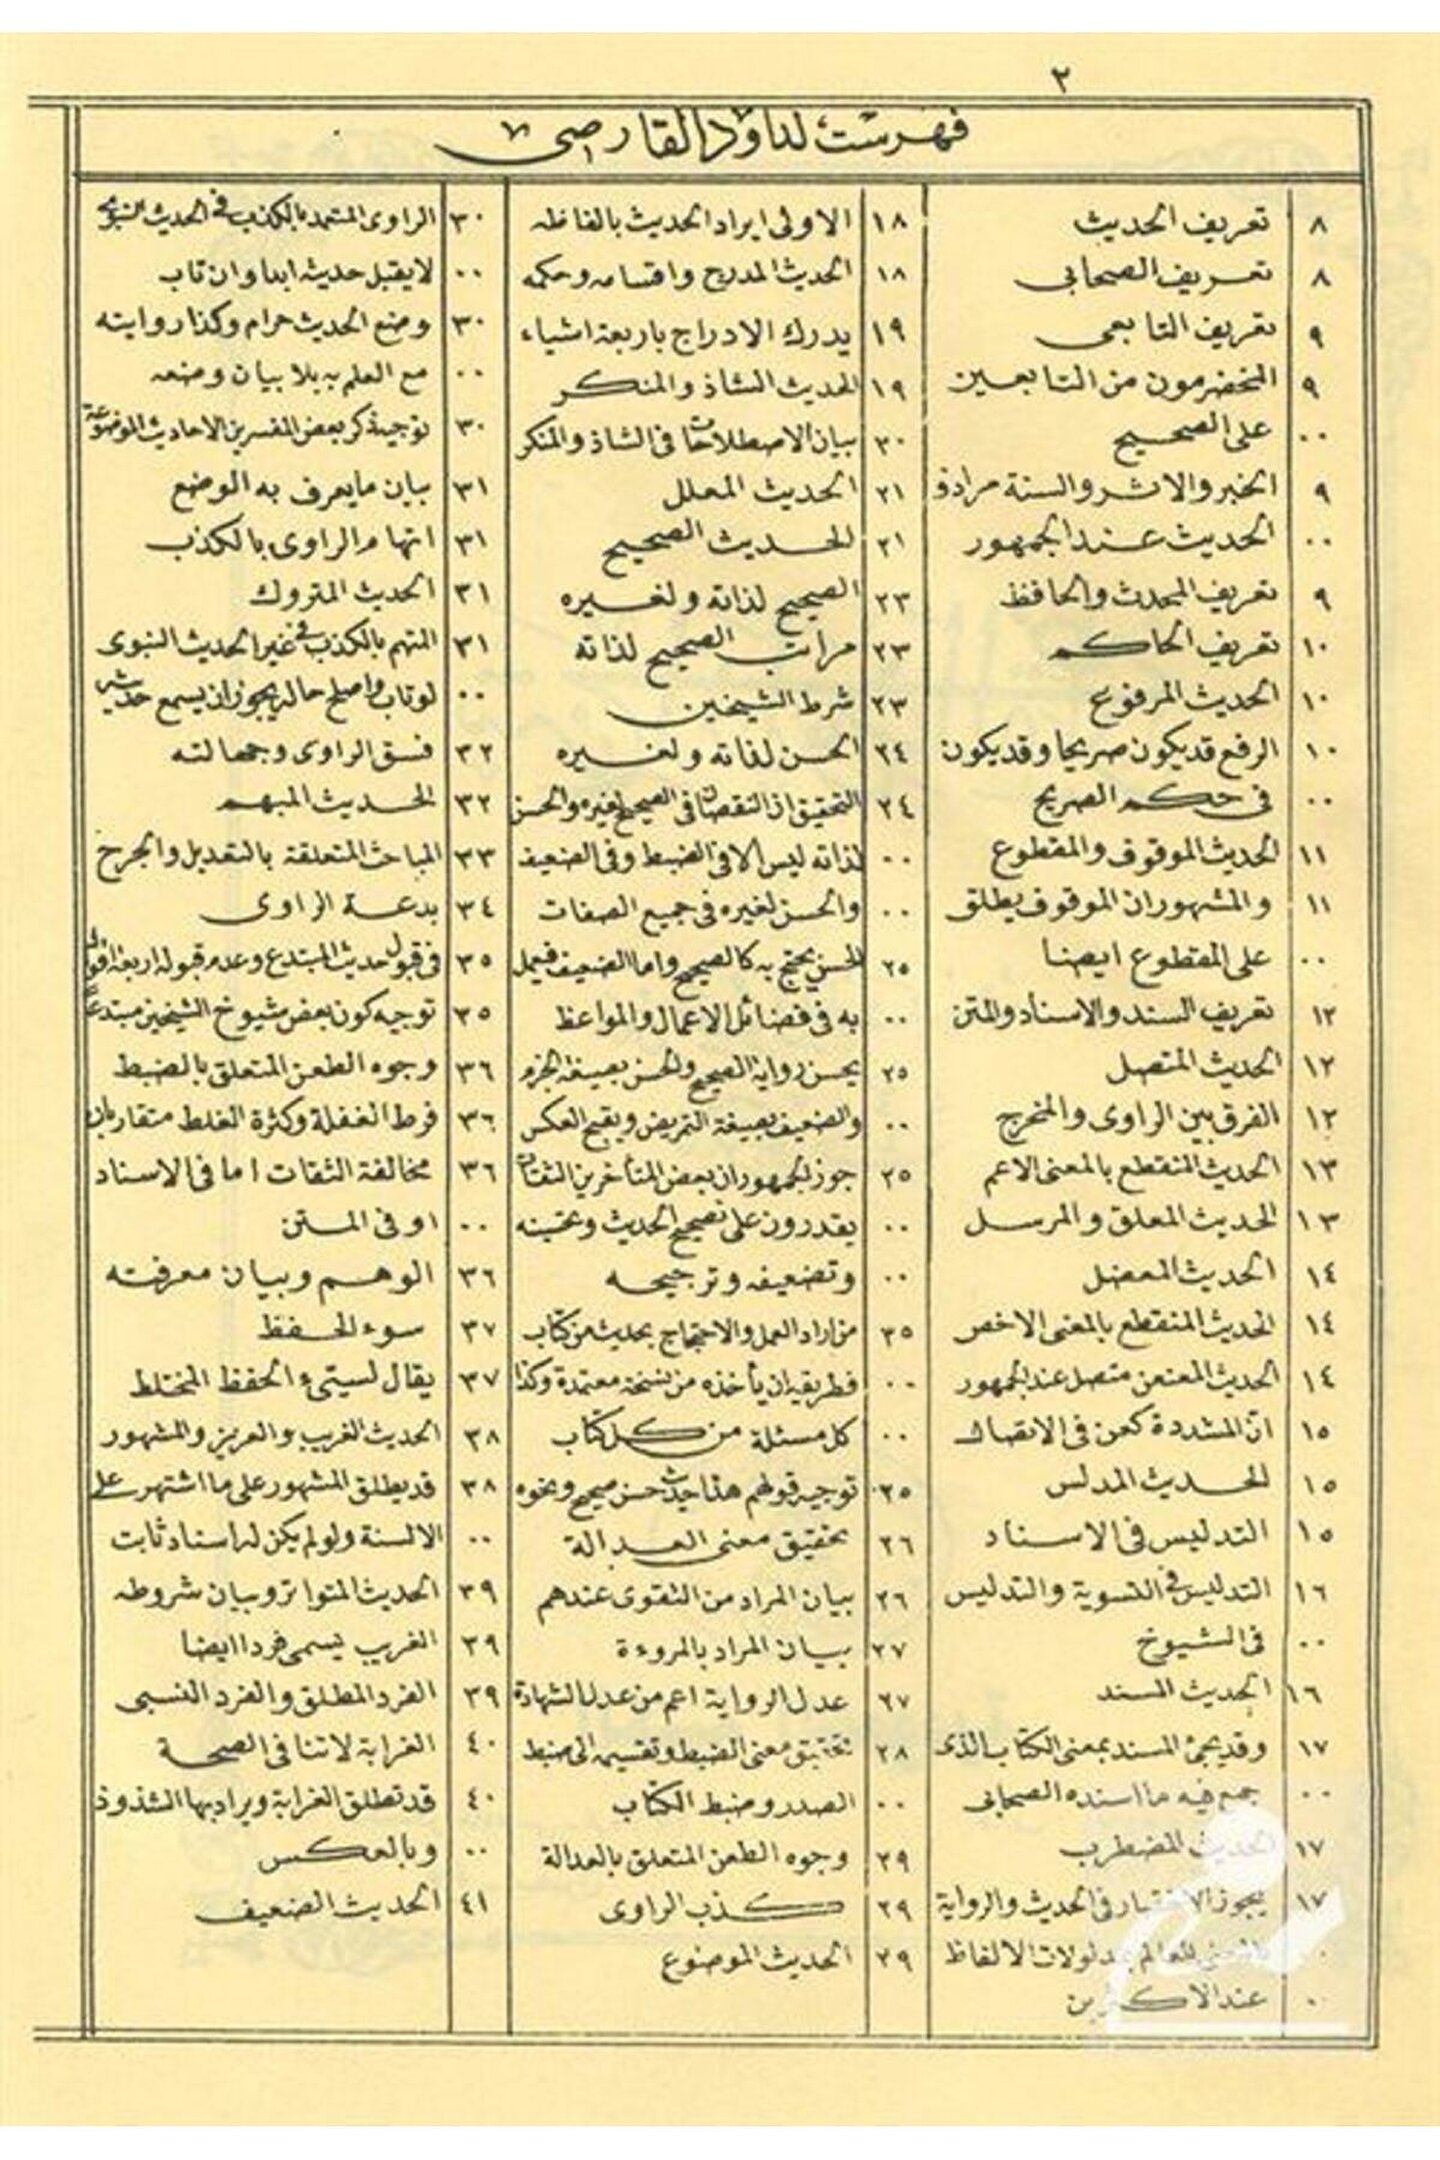 ٢
فهرست لداود القارصى
٨ تعريف الحديث
٨ تعريف الصحابى
٩ تعريف التابعى
٩ المخضرمون من التابعين
٠٠ على الصحيح
٩ الخبر والاثر والسنة مرادف
٠٠ الحديث عند الجمهور
٩ تعريف المحدث والحافظ
١٠ تعريف الحاكم
١٠ الحديث المرفوع
١٠ الرفع قد يكون صريحا وقد يكون
٠٠ فى حكم الصريح
١١ الحديث الموقوف والمقطوع
١١ والمشهور ان الموقوف يطلق
٠٠ على المقطوع ايضا
١٢ تعريف السند والاسناد والمتن
١٢ الحديث المتصل
١٢ الفرق بين الراوى والمخرج
١٣ الحديث المنقطع بالمعنى الاعم
١٣ الحديث المعلق والمرسل
١٤ الحديث المعضل
١٤ الحديث المنقطع بالمعنى الاخص
١٤ الحديث المعنعن متصل عند الجمهور
١٥ انّ المشددة كعن فى الاتصال
١٥ الحديث المدلس
١٥ التدليس فى الاسناد
١٦ التدليس فى التسوية والتدليس
٠٠ فى الشيوخ
١٦ الحديث المسند
١٧ وقد يجئ المسند بمعنى الكتاب الذى
٠٠ جمع فيه ما اسنده الصحابى
١٧ الحديث المضطرب
١٧ يجوز الاختصار فى الحديث والرواية
٠٠ بالمعنى للعالم بمدلولات الالفاظ
٠٠ عند الاكثرين
١٨ الاولى ايراد الحديث بالفاظه
١٨ الحديث المدرج واقسامه وحكمه
١٩ يدرك الادراج باربعة اشياء
١٩ الحديث الشاذ والمنكر
٢٠ بيان الاصطلاحات فى الشاذ والمنكر
٢١ الحديث المعلل
٢١ الحديث الصحيح
٢٣ الصحيح لذاته ولغيره
٢٣ مراتب الصحيح لذاته
٢٣ شرط الشيخين
٢٤ الحسن لذاته ولغيره
٢٤ التحقيق ان النقصان فى الصحيح لغيره والحسن
٠٠ لذاته ليس الا فى الضبط وفى الضعيف
٠٠ والحسن لغيره فى جميع الصفات
٢٥ الحسن يحتج به كالصحيح واما الضعيف فيعمل
٠٠ به فى فضائل الاعمال والمواعظ
٢٥ يحسن رواية الصحيح والحسن بصيغة الجزم
٠٠ والضعيف بصيغة التمريض ويقبح العكس
٢٥ جوز الجمهور ان بعض المتأخرين الثقات
٠٠ يقدرون على تصحيح الحديث وتحسينه
٠٠ وتضعيفه وترجيحه
٢٥ من اراد العمل والاحتجاج بحديث من كتاب
٠٠ فطريقه ان يأخذه من نسخة معتمدة وكذا
٠٠ كل مسئلة من كل كتاب
٢٥ توجيه قولهم هذا حديث حسن صحيح ونحوه
٢٦ تحقيق معنى العدالة
٢٦ بيان المراد من التقوى عندهم
٢٧ بيان المراد بالمروءة
٢٧ عدل الرواية اعم من عدل الشهادة
٢٨ تحقيق معنى الضبط وتقسيمه الى ضبط
٠٠ الصدر وضبط الكتاب
٢٩ وجوه الطعن المتعلق بالعدالة
٢٩ كذب الراوى
٢٩ الحديث الموضوع
٣٠ الراوى المتعمد بالكذب فى الحديث النبوى
٠٠ لا يقبل حديثه ابدا وان تاب
٣٠ وضع الحديث حرام وكذا روايته
٠٠ مع العلم به بلا بيان وضعه
٣٠ توجيه ذكر بعض المفسرين الاحاديث الموضوعة
٣١ بيان ما يعرف به الوضع
٣١ اتهام الراوى بالكذب
٣١ الحديث المتروك
٣١ المتهم بالكذب فى غير الحديث النبوى
٠٠ لو تاب واصلح حاله يجوز ان يسمع حديثه
٣٢ فسق الراوى وجهالته
٣٢ الحديث المبهم
٣٣ المباحث المتعلقة بالتعديل والجرح
٣٤ بدعة الراوى
٣٥ فى قبول حديث المبتدع وعدم قبوله اربعة اقوال
٣٥ توجيه كون بعض شيوخ الشيخين مبتدعا
٣٦ وجوه الطعن المتعلق بالضبط
٣٦ فرط الغفلة وكثرة الغلط متقاربان
٣٦ مخالفة الثقات اما فى الاسناد
٠٠ او فى المتن
٣٦ الوهم وبيان معرفته
٣٧ سوء الحفظ
٣٧ يقال لسيئ الحفظ المختلط
٣٨ الحديث الغريب والعزيز والمشهور
٣٨ قد يطلق المشهور على ما اشتهر على
٠٠ الالسنة ولو لم يكن له اسناد ثابت
٣٩ الحديث المتواتر وبيان شروطه
٣٩ الغريب يسمى فردا ايضا
٣٩ الفرد المطلق والفرد النسبى
٤٠ الغرابة لا تنافى الصحة
٤٠ قد تطلق الغرابة ويراد بها الشذوذ
٠٠ وبالعكس
٤١ الحديث الضعيف